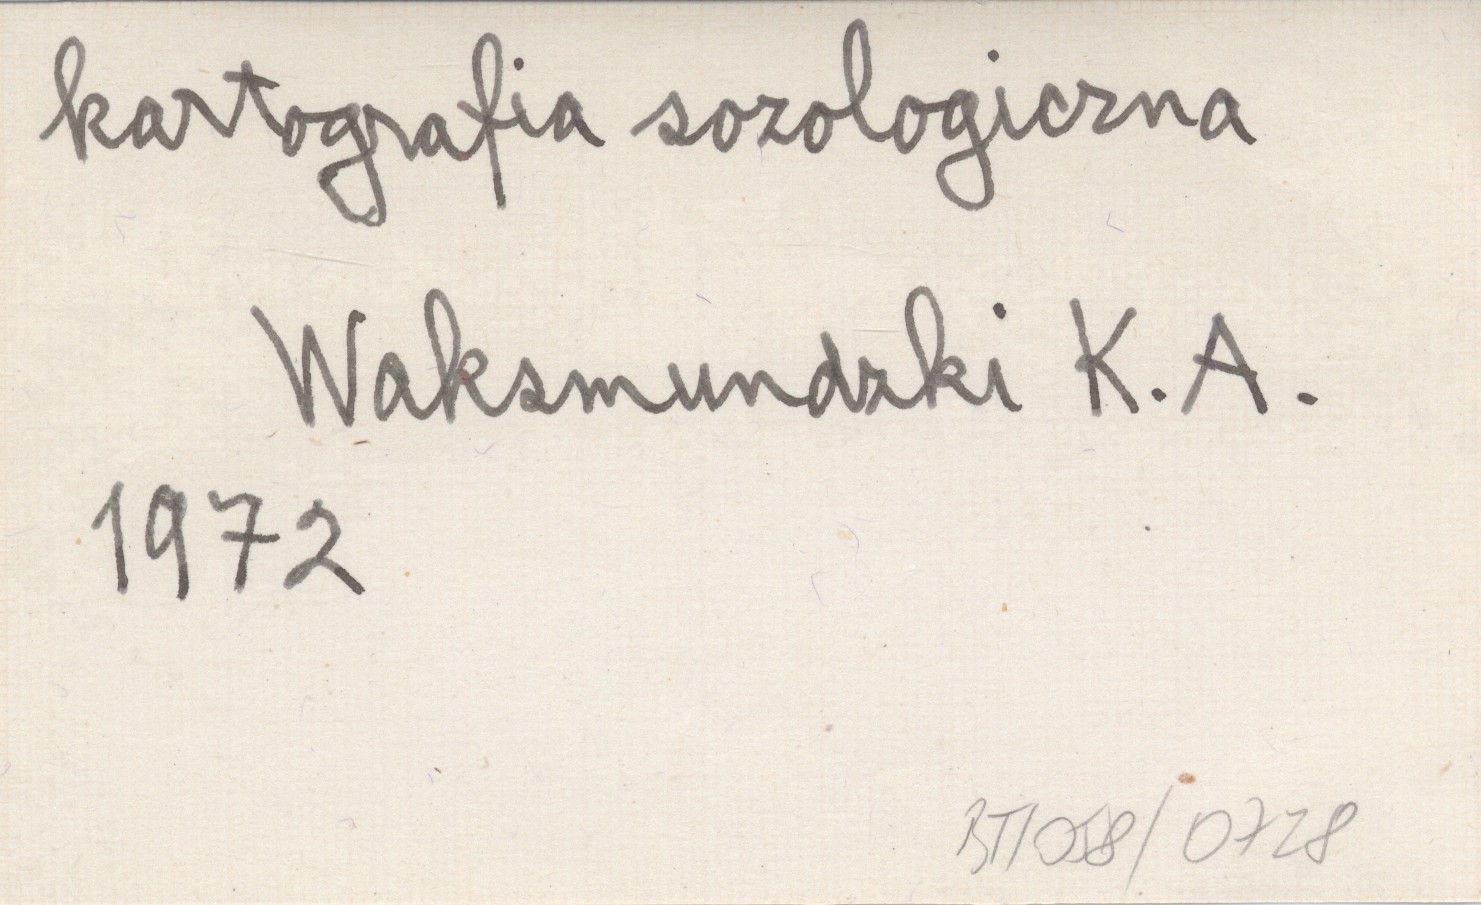 kartografia sozologiczna
Waksmundzki K. A.
1972
BT/058/0728